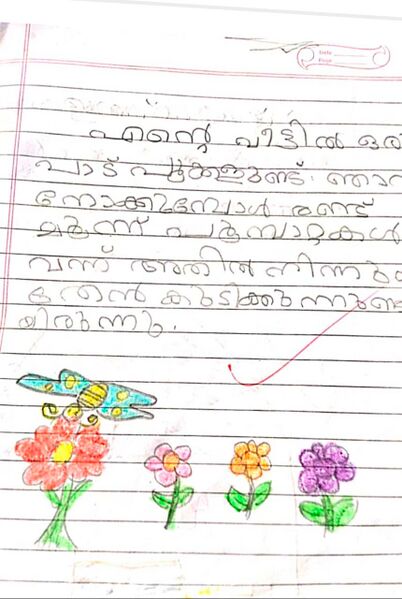 Date
Page
എന്റെ വീട്ടിൽ ഒരു
പാട് പൂക്കളുണ്ട്. ഞാൻ
നോക്കുമ്പോൾ രണ്ട്
മൂന്ന് പൂമ്പാറ്റകൾ
വന്ന് അതിൽ നിന്നും
തേൻ കുടിക്കുന്നുണ്ടാ
യിരുന്നു.